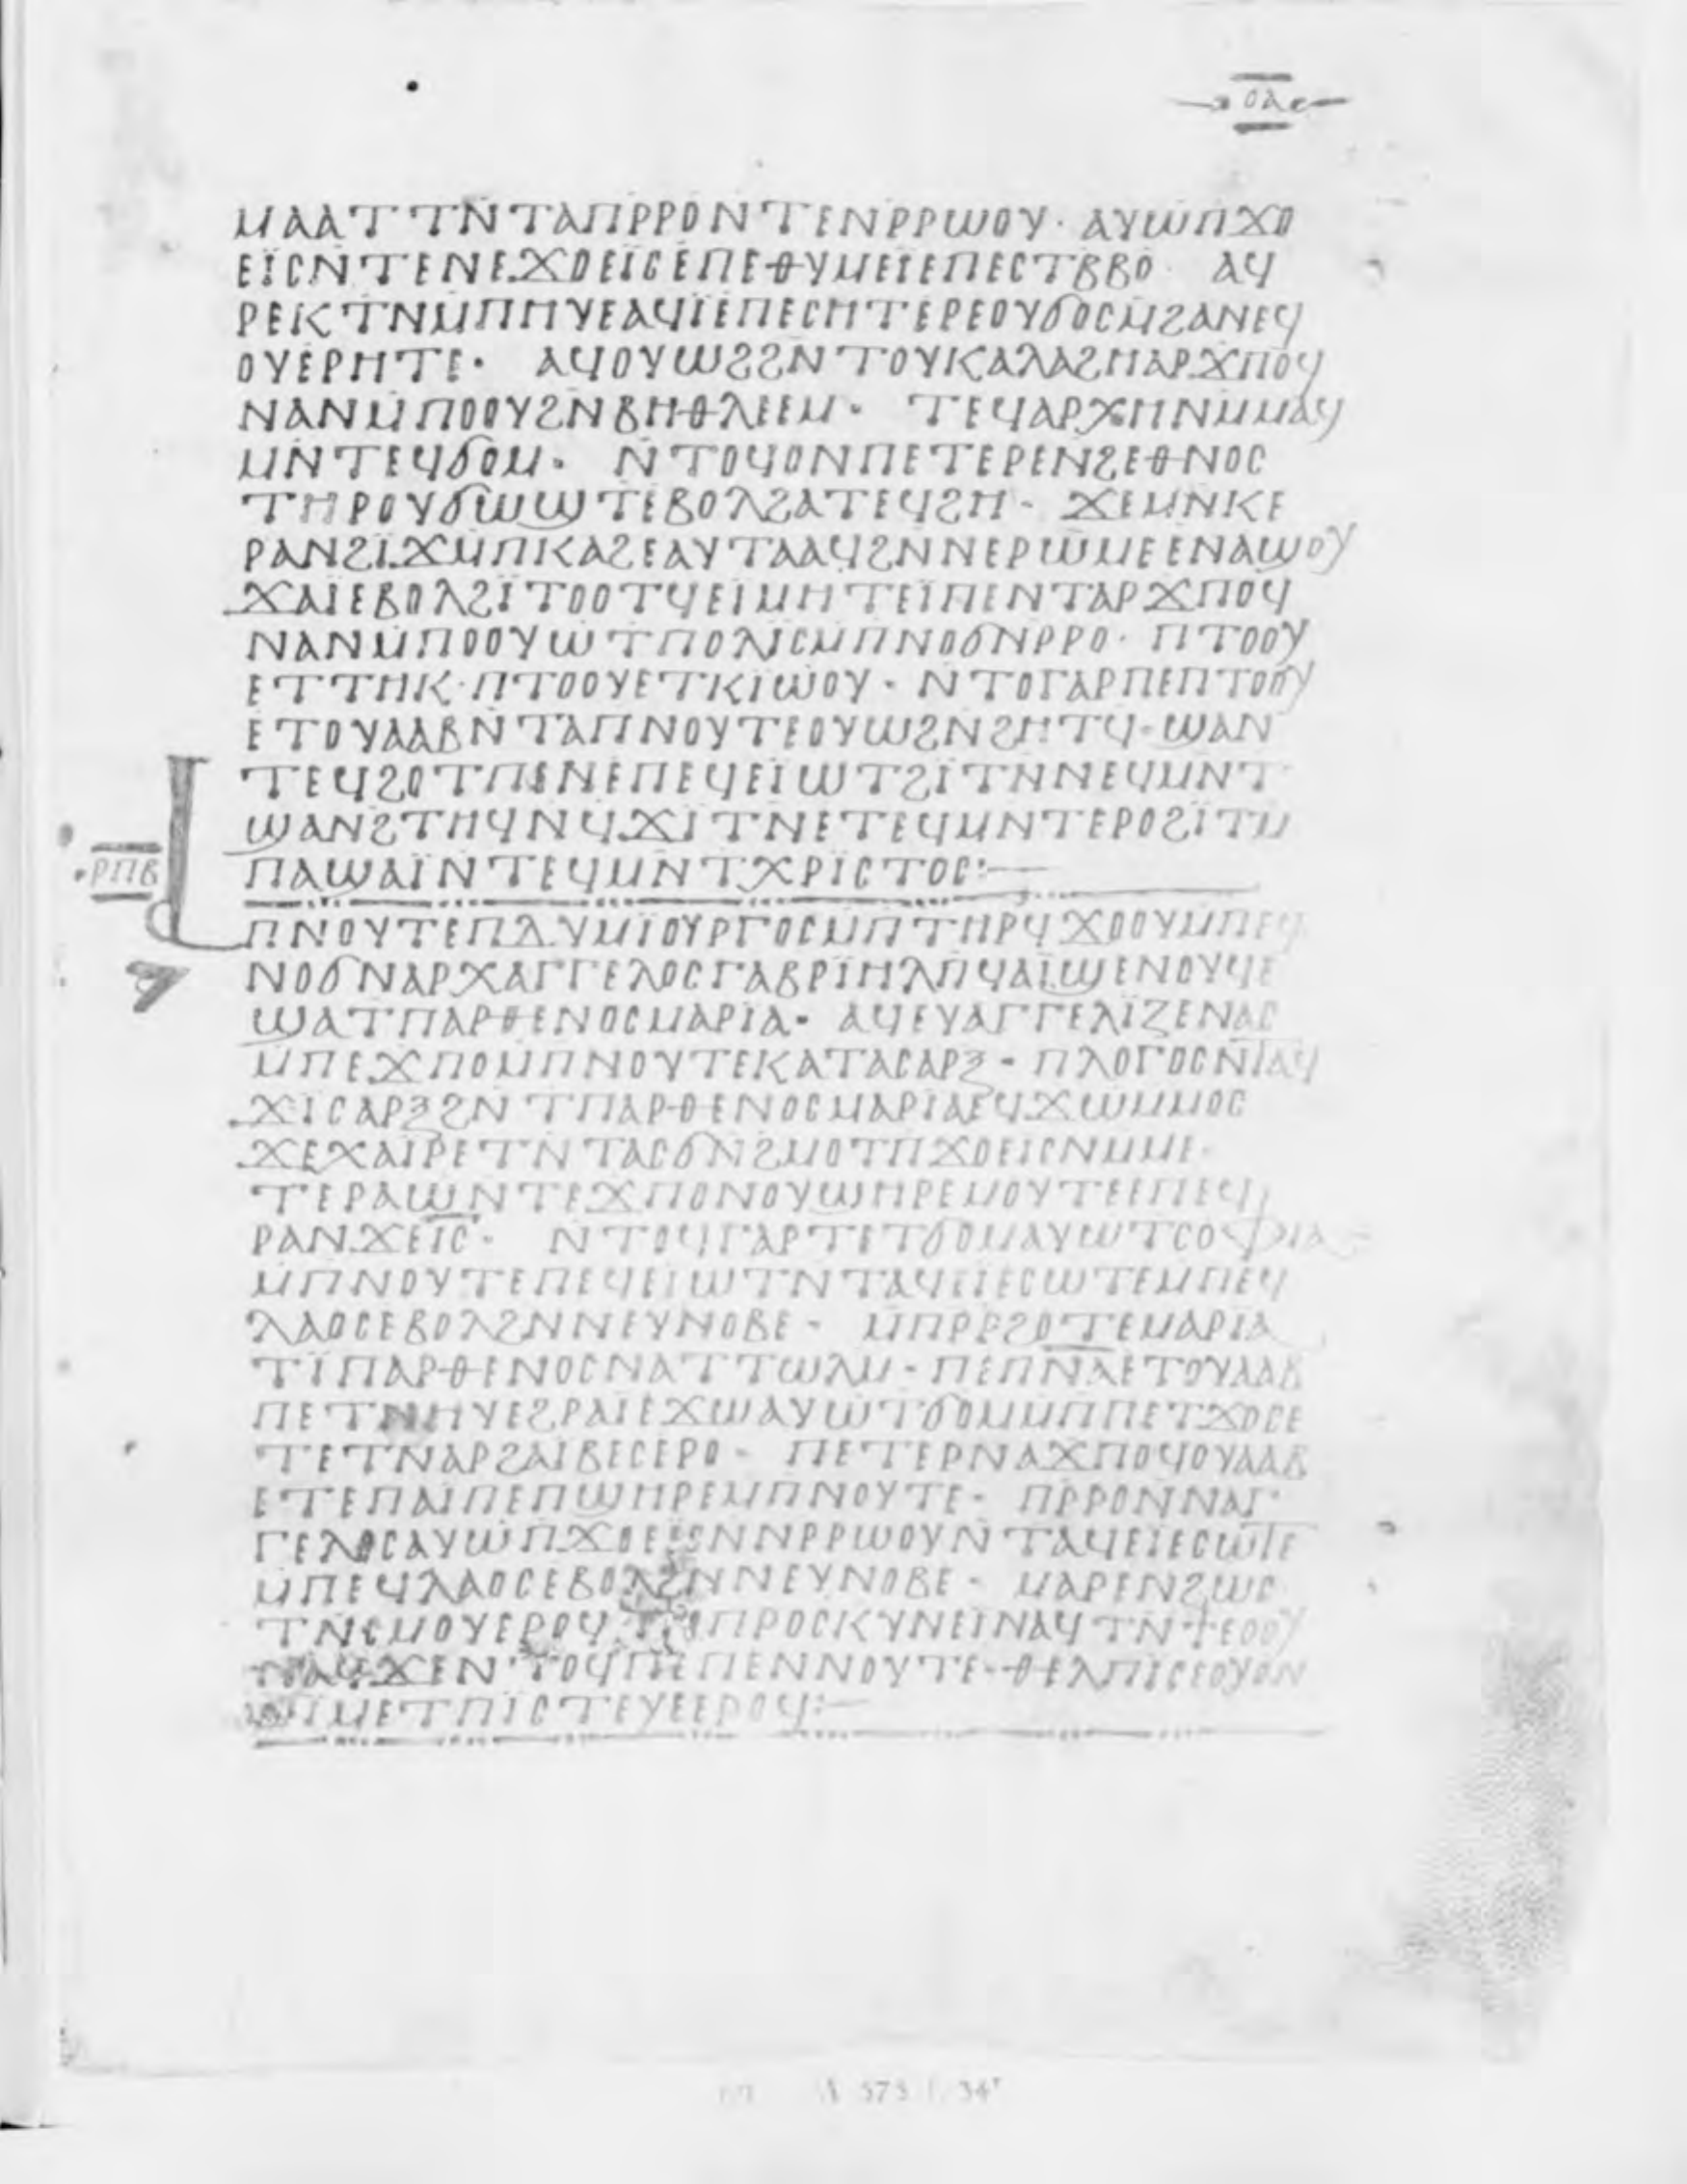 ⲟⲗ
ⲙⲁⲁⲧ ⲧⲛ̄ⲧⲁⲡⲣⲣⲟⲛ̄ⲧⲉⲛⲣⲣⲱⲟⲩ· ⲁⲩⲱⲡϫⲟ
ⲉⲓ̈ⲥⲛ̄ⲧⲉⲛⲉϫⲟⲉⲓ̈ⲥⲉⲡⲉⲑⲩⲙⲉⲓ̈ⲉⲡⲉⲥⲧⲃⲃⲟ· ⲁϥ
ⲣⲉⲕⲧⲛ̄ⲙ̄ⲡⲏⲩⲉⲁϥⲓ̈ⲉⲡⲉⲥⲏⲧⲉⲣⲉⲟⲩϭⲟⲥⲙ̄ϩⲁⲛⲉϥ
ⲟⲩⲉⲣⲏⲧⲉ· ⲁϥⲟⲩⲱϩϩⲛ̄ⲧⲟⲩⲕⲁⲗⲁϩⲏⲁⲣϫⲡⲟϥ
ⲛⲁⲛⲙ̄ⲡⲟⲟⲩϩⲛ̄ⲃⲏⲑⲗⲉⲉⲙ· ⲧⲉϥⲁⲣⲭⲏⲛⲙ̄ⲙⲁϥ
ⲙⲛ̄ⲧⲉϥϭⲟⲙ· ⲛ̄ⲧⲟϥⲟⲛⲡⲉⲧⲉⲣⲉⲛϩⲉⲑⲛⲟⲥ
ⲧⲏⲣⲟⲩϭⲱϣⲧⲉⲃⲟⲗϩⲁⲧⲉϥϩⲏ· ϫⲉⲙⲛ̄ⲕⲉ
ⲣⲁⲛϩⲓϫⲙ̄ⲡⲕⲁϩⲉⲁⲩⲧⲁⲁϥϩⲛ̄ⲛⲉⲣⲱⲙⲉⲉⲛⲁϣⲟⲩ
ϫⲁⲓ̈ⲉⲃⲟⲗϩⲓ̈ⲧⲟⲟⲧϥⲉⲓⲙⲏⲧⲉⲓ̈ⲡⲉⲛⲧⲁⲣϫⲡⲟϥ
ⲛⲁⲛⲙ̄ⲡⲟⲟⲩⲱⲧⲡⲟⲗⲓⲥⲙ̄ⲡⲛⲟϭⲛ̄ⲣⲣⲟ· ⲡⲧⲟⲟⲩ
ⲉⲧⲧⲏⲕ·ⲡⲧⲟⲟⲩⲉⲧⲕⲓ̈ⲱⲟⲩ· ⲛ̄ⲧⲟⲅⲁⲣⲡⲉⲡⲧⲟⲟⲩ
ⲉⲧⲟⲩⲁⲁⲃⲛ̄ⲧⲁⲡⲛⲟⲩⲧⲉⲟⲩⲱϩⲛ̄ϩⲏⲧϥ·ϣⲁⲛ
ⲧⲉϥϩⲟⲧⲡⲉ̄ⲛⲉⲡⲉϥⲉⲓ̈ⲱⲧϩⲓ̈ⲧⲛ̄ⲛⲉϥⲙⲛ̄ⲧ
ϣⲁⲛϩⲧⲏϥⲛϥ̄ϫⲓⲧⲛ̄ⲉⲧⲉϥⲙⲛ̄ⲧⲉⲣⲟϩⲓ̈ⲧⲙ
ⲡⲁϣⲁⲓ̈ⲛ̄ⲧⲉϥⲙⲛ̄ⲧⲭⲣⲓⲥⲧⲟⲥ:—
·ⲣⲡⲃ
ⲡⲛⲟⲩⲧⲉⲡⲇⲩⲙⲓⲟⲩⲣⲅⲟⲥⲙ̄ⲡⲧⲏⲣϥϫⲟⲟⲩⲙ̄ⲡⲉϥ
ⲛⲟϭⲛⲁⲣⲭⲁⲅⲅⲉⲗⲟⲥⲅⲁⲃⲣⲓ̈ⲏⲗⲡϥⲁⲓ̈ϣⲉⲛⲟⲩϥⲉ
ϣⲁⲧⲡⲁⲣⲑⲉⲛⲟⲥⲙⲁⲣⲓⲁ· ⲁϥⲉⲩⲁⲅⲅⲉⲗⲓⲍⲉⲛⲁⲥ
ⲙ̄ⲡⲉϫⲡⲟⲙ̄ⲡⲛⲟⲩⲧⲉⲕⲁⲧⲁⲥⲁⲣⲝ· ⲡⲗⲟⲅⲟⲥⲛ̄ⲧⲁϥ
ϫⲓⲥⲁⲣⲝϩⲛ̄ⲧⲡⲁⲣⲑⲉⲛⲟⲥⲙⲁⲣⲓⲁⲉϥϫⲱⲙ̄ⲙⲟⲥ
ϫⲉⲭⲁⲓⲣⲉⲧⲛ̄ⲧⲁⲥϭⲛ̄ϩⲙⲟⲧⲡϫⲟⲉⲓⲥⲛⲙ̄ⲙⲉ·
ⲧⲉⲣⲁϣⲛ̄ⲧⲉϫⲡⲟⲛⲟⲩϣⲏⲣⲉⲙⲟⲩⲧⲉⲉⲡⲉϥ
ⲣⲁⲛϫⲉⲓ̅ⲥ̅· ⲛ̄ⲧⲟϥⲅⲁⲣⲧⲉⲧϭⲟⲙⲁⲩⲱⲧⲥⲟⲫⲓⲁ
ⲙ̄ⲡⲛⲟⲩⲧⲉⲡⲉϥⲉⲓⲱⲧⲛ̄ⲧⲁϥⲉⲓⲉⲥⲱⲧⲉⲙ̄ⲡⲉϥ
ⲗⲁⲟⲥⲉⲃⲟⲗϩⲛ̄ⲛⲉⲩⲛⲟⲃⲉ· ⲙ̄ⲡⲣⲣϩⲟⲧⲉⲙⲁⲣⲓⲁ
ⲧⲓ̈ⲡⲁⲣⲑⲉⲛⲟⲥⲛⲁⲧⲧⲱⲗⲙ· ⲡⲉⲡ̅ⲛ̅ⲁ̅ⲉⲧⲟⲩⲁⲁⲃ
ⲡⲉⲧⲛⲏⲩⲉϩⲣⲁⲓⲉϫⲱⲁⲩⲱⲧϭⲟⲙⲙ̄ⲡⲡⲉⲧϫⲟⲥⲉ
ⲧⲉⲧⲛⲁⲣϩⲁⲓⲃⲉⲥⲉⲣⲟ· ⲡⲉⲧⲉⲣⲛⲁϫⲡⲟϥⲟⲩⲁⲁⲃ
ⲉⲧⲉⲡⲁⲓⲡⲉⲡϣⲏⲣⲉⲙ̄ⲡⲛⲟⲩⲧⲉ· ⲡⲣⲣⲟⲛ̄ⲛⲁⲅ
ⲅⲉⲗⲟⲥⲁⲩⲱⲡϫⲟⲉⲓⲥⲛ̄ⲛⲣⲣⲱⲟⲩⲛ̄ⲧⲁϥⲉⲓⲉⲥⲱⲧⲉ
ⲙ̄ⲡⲉϥⲗⲁⲟⲥⲉⲃⲟⲗϩⲛ̄ⲛⲉⲩⲛⲟⲃⲉ· ⲙⲁⲣⲉⲛϩⲱⲥ
ⲧⲛ̄ⲥⲙⲟⲩⲉⲣⲟϥ ⲧⲛ̄ⲡⲣⲟⲥⲕⲩⲛⲉⲓⲛⲁϥⲧⲛ̄ϯⲉⲟⲟⲩ
ⲛⲁϥϫⲉⲛ̄ⲧⲟϥⲡⲉⲡⲉⲛⲛⲟⲩⲧⲉ· ⲑⲉⲗⲡⲓⲥⲉⲟⲩⲟⲛ
ⲛⲓⲙⲉⲧⲡⲓⲥⲧⲉⲩⲉⲉⲣⲟϥ:—